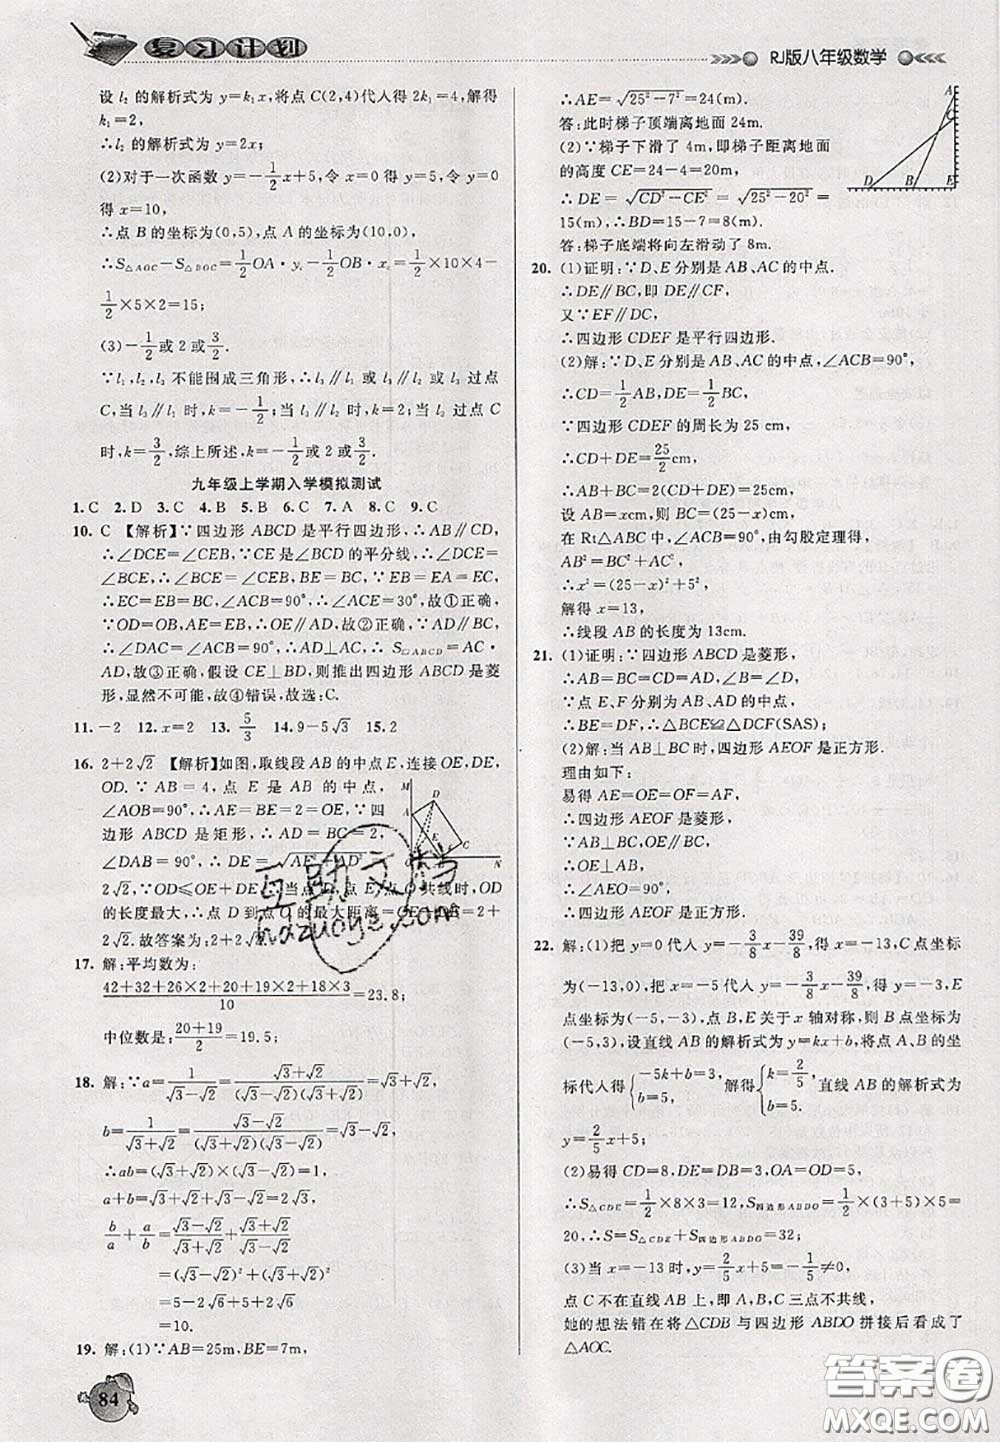 复习计划
RJ版八年级数学
设 l₂ 的解析式为 y=k₁x,将点 C(2,4)代入得 2k₁=4,解得
k₁=2,
∴l₂ 的解析式为 y=2x;
(2)对于一次函数 y=-1/2x+5,令 x=0 得 y=5,令 y=0
得 x=10,
∴点 B 的坐标为(0,5),点 A 的坐标为(10,0),
∴S△AOC-S△BOC=1/2OA·yc-1/2OB·xc=1/2×10×4-
1/2×5×2=15;
(3)-1/2或 2 或3/2.
∵l₁,l₂,l₃ 不能围成三角形,∴l₃∥l₁ 或l₃∥l₂ 或l₃ 过点
C,当 l₃∥l₁ 时,k=-1/2;当 l₃∥l₂ 时,k=2;当 l₃ 过点 C
时,k=3/2,综上所述,k=-1/2或 2 或3/2.
九年级上学期入学模拟测试
1.C 2.D 3.C 4.B 5.B 6.C 7.A 8.C 9.C
10. C 【解析】∵四边形 ABCD 是平行四边形,∴AB∥CD,
∴∠DCE=∠CEB,∵CE 是∠BCD 的平分线,∴∠DCE=
∠BCE,∴∠CEB=∠BCE,∴BC=BE,∵AE=BE=BC,
∴EC=EB=BC,∠ACB=90°,∴∠ACE=30°,故①正确,
∵OD=OB,AE=EB,∴OE∥AD,故②正确,∵AD∥BC,
∴∠DAC=∠ACB=90°,∴AD⊥AC,∴S▱ABCD=AC·
AD,故③正确,假设 CE⊥BD,则推出四边形 ABCD 是菱
形,显然不可能,故④错误,故选:C.
11.-2 12.x=2 13.5/3 14.9-5√3 15.2
16. 2+2√2 【解析】如图,取线段 AB 的中点 E,连接 OE,DE,
OD.∵AB=4,点 E 是 AB 的中点,
∠AOB=90°,∴AE=BE=2=OE,∵四
边形 ABCD 是矩形,∴AD=BC=2,
∠DAB=90°,∴DE=√(AE²+AD²)=
2√2,∵OD≤OE+DE,∴当点 D,点 E,点 O 共线时,OD
的长度最大,∴点 D 到点 O 的最大距离=OE+DE=2+
2√2.故答案为:2+2√2.
17. 解:平均数为:
(42+32+26×2+20+19×2+18×3)/10=23.8;
中位数是:(20+19)/2=19.5;
18. 解:∵a=1/(√3-√2)=(√3+√2)/((√3-√2)(√3+√2))=√3+√2,
b=1/(√3+√2)=(√3-√2)/((√3+√2)(√3-√2))=√3-√2,
∴ab=(√3+√2)×(√3-√2)=1,
a+b=√3+√2+√3-√2=2√3,
b/a+a/b=(√3-√2)/(√3+√2)+(√3+√2)/(√3-√2)
=(√3-√2)²+(√3+√2)²
=5-2√6+5+2√6
=10.
19. 解:(1)∵AB=25m,BE=7m,
84
∴AE=√(25²-7²)=24(m).
答:此时梯子顶端离地面 24m.
(2)∵梯子下滑了 4m,即梯子距离地面
的高度 CE=24-4=20m,
∴DE=√(CD²-CE²)=√(25²-20²)=
15(m),∴BD=15-7=8(m).
答:梯子底端将向左滑动了 8m.
20. (1)证明:∵D、E 分别是 AB、AC 的中点.
∴DE∥BC,即 DE∥CF,
又∵EF∥DC,
∴四边形 CDEF 是平行四边形.
(2)解:∵D、E 分别是 AB、AC 的中点,∠ACB=90°,
∴CD=1/2AB,DE=1/2BC,
∵四边形 CDEF 的周长为 25 cm,
∴CD+DE=25/2cm,
∴AB+BC=25cm,
设 AB=xcm,则 BC=(25-x)cm,
在 Rt△ABC 中,∠ACB=90°,由勾股定理得,
AB²=BC²+AC²,
∴x²=(25-x)²+5²,
解得 x=13,
∴线段 AB 的长度为 13cm.
21. (1)证明:∵四边形 ABCD 是菱形,
∴AB=BC=CD=AD,∠B=∠D,
∵点 E、F 分别为 AB、AD 的中点,
∴BE=DF,∴△BCE≌△DCF(SAS);
(2)解:当 AB⊥BC 时,四边形 AEOF 是正方形.
理由如下:
易得 AE=OE=OF=AF,
∴四边形 AEOF 是菱形,
∵AB⊥BC,OE∥BC,
∴OE⊥AB,
∴∠AEO=90°,
∴四边形 AEOF 是正方形.
22. 解:(1)把 y=0 代入 y=-3/8x-39/8,得 x=-13,C 点坐标
为(-13,0),把 x=-5 代入 y=-3/8x-39/8,得 y=-3,E
点坐标为(-5,-3),点 B,E 关于 x 轴对称,则 B 点坐标为
(-5,3),设直线 AB 的解析式为 y=kx+b,将点 A、B 的坐
标代入得{-5k+b=3, b=5. 解得{k=2/5, b=5. 直线 AB 的解析式为
y=2/5x+5;
(2)易得 CD=8,DE=DB=3,OA=OD=5,
∴S△CDE=1/2×8×3=12,S四边形ABDO=1/2×(3+5)×5=
20,∴S=S△CDE+S四边形ABDO=32;
(3)当 x=-13 时,y=2/5x+5=-1/5≠0,
点 C 不在直线 AB 上,即 A,B,C 三点不共线,
她的想法错在将△CDB 与四边形 ABDO 拼接后看成了
△AOC.
A
C
D
B
E
M
D
A
E
C
O
B
N
互助文档
hazuoye.com
答案圈
MXQE.COM